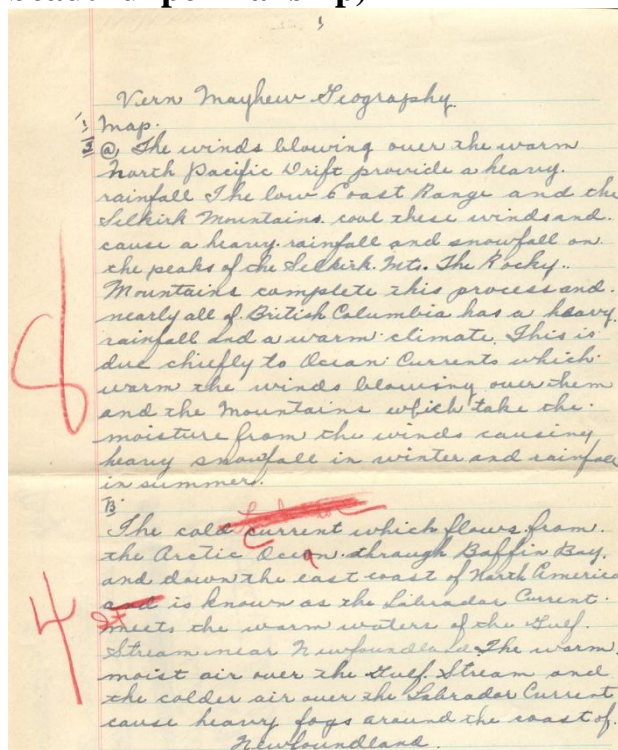 Vern Mayhew Geography.
Map.
@ The winds blowing over the warm
North Pacific Drift provide a heavy.
rainfall The low Coast Range and the
Selkirk Mountains. cool these winds and.
cause a heavy. rainfall and snowfall on
the peaks of the Selkirk. Mts. The Rocky..
Mountains complete this process and.
nearly all of British Columbia has a heavy.
rainfall and a warm climate. This is
due chiefly to Ocean Currents which
warm the winds blowing over them
and the Mountains which take the.
moisture from the winds causing
heavy snowfall in winter and rainfall
in summer.
B
The cold current which flows from.
the Arctic Ocean through Baffin Bay.
and down the east coast of North America
8
and is known as the Labrador Current.
4 It
meets the warm waters of the Gulf.
Stream near Newfoundland. The warm
moist air over the Gulf. Stream and
the colder air over the Labrador Current
cause heavy fogs around the coast of.
Newfoundland.